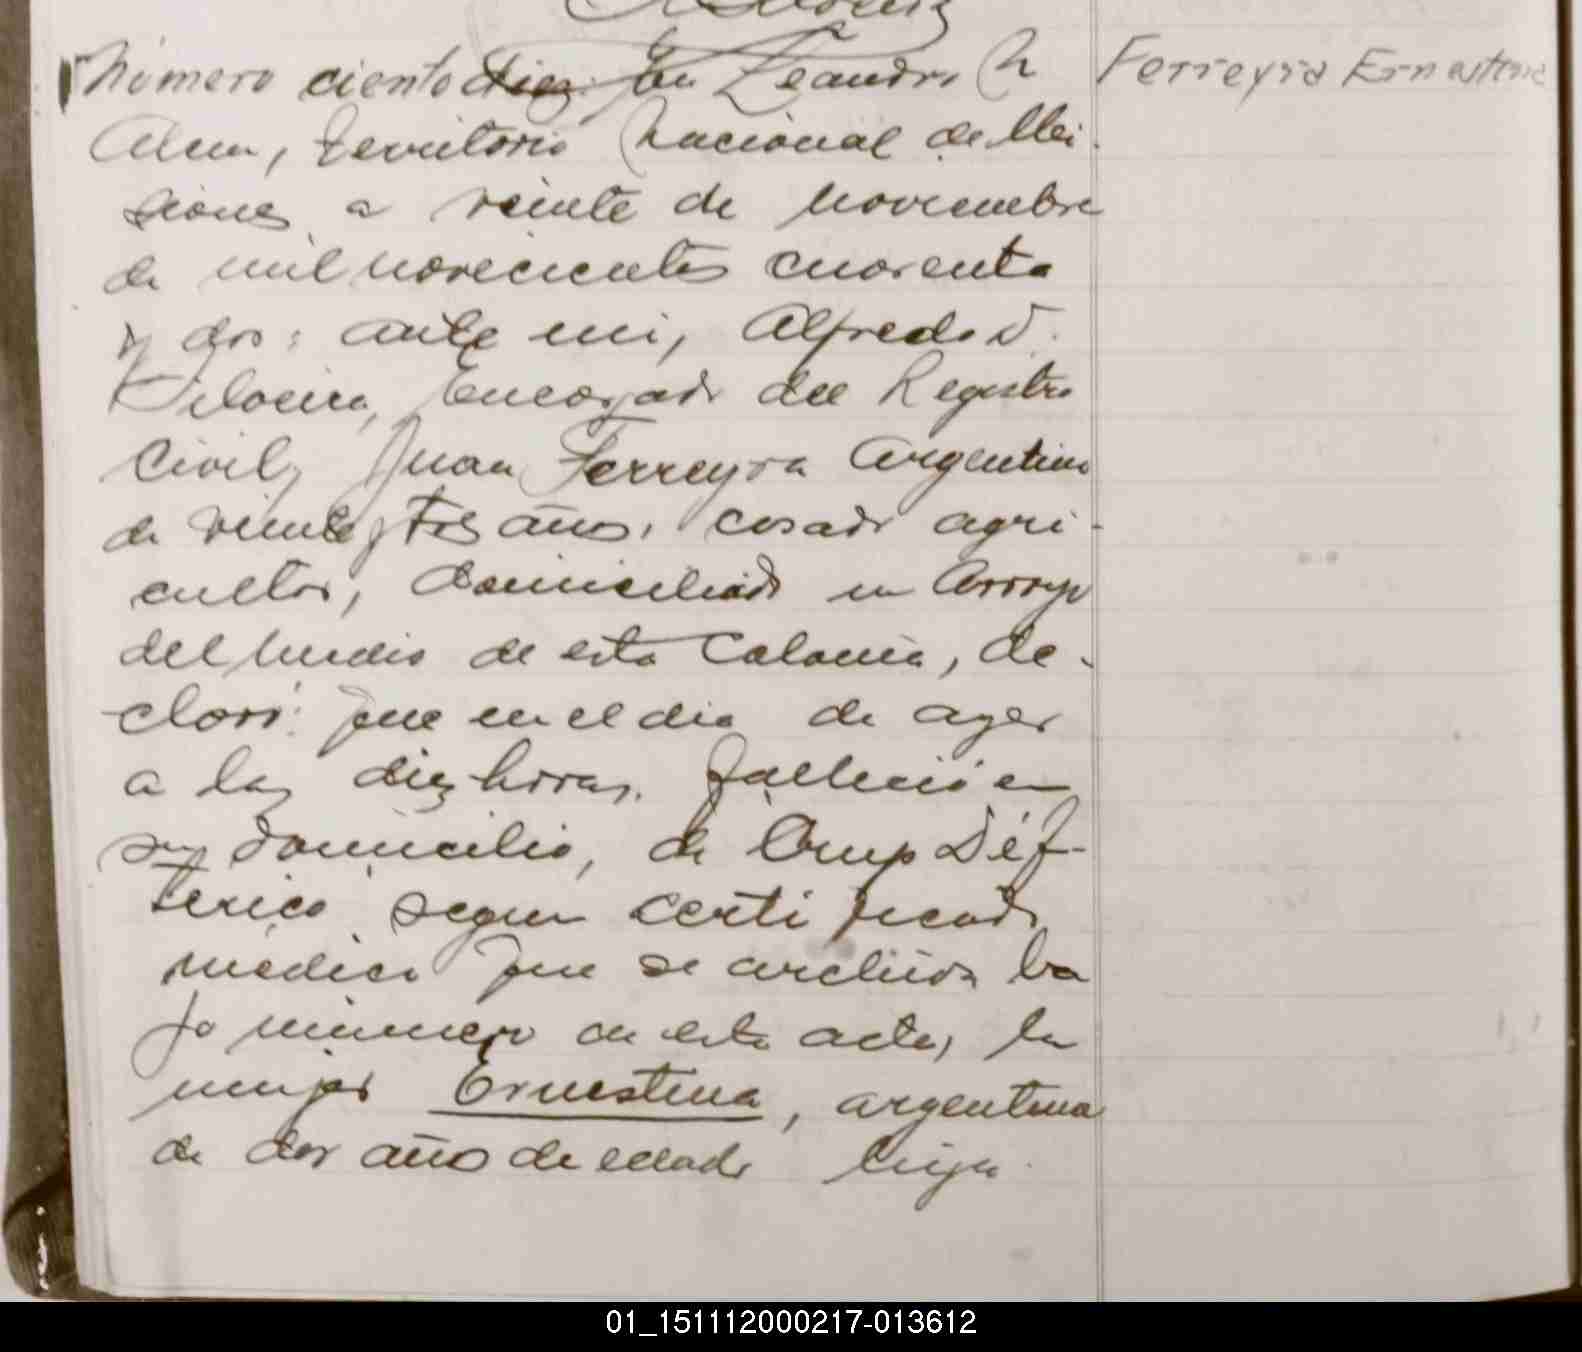 Número ciento diez. En Leandro N
Alem, territorio Nacional de Mi
siones a veinte de noviembre
de mil novecientos cuarenta
y dos: ante mi, Alfredo D.
Encargado del Registro
Civil, Juan Ferreyra Argentino
de veinte y tres años, casado agri-
cultor, domiciliado en Arroyo
del medio de esta Colonia, de-
claró: que en el dia de ayer
a las diez horas. falleció en
su domicilio, de Crup Dif-
terico segun certificado
médico que se archiva ba
jo número de esta acta, la
mujer Ernestina, argentina
de dos año de edad hija
Ferreyra Ernestina
01_151112000217-013612